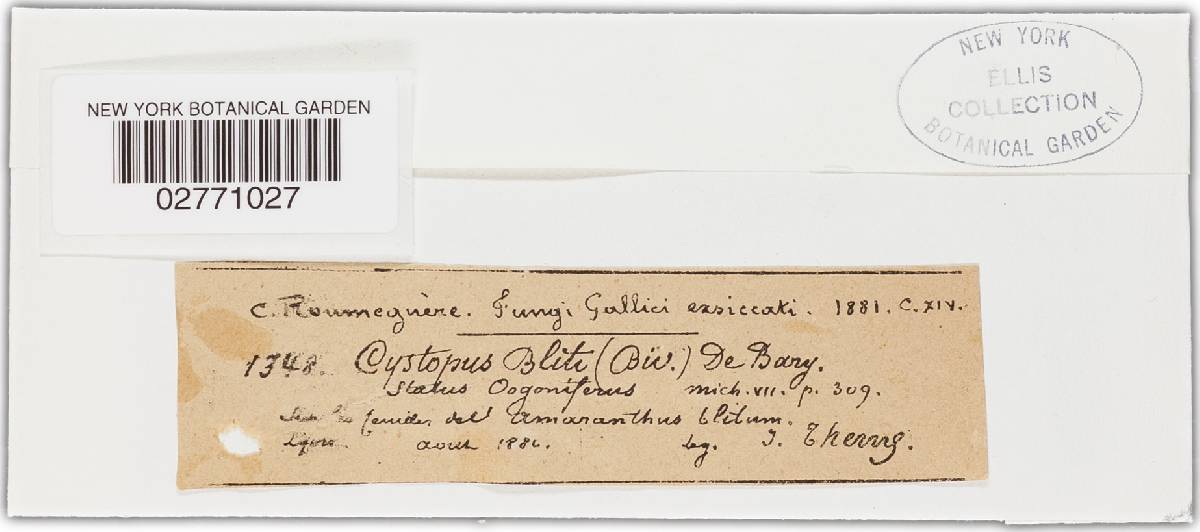 NEW YORK BOTANICAL GARDEN
02771027
NEW YORK
ELLIS
COLLECTION
BOTANICAL GARDEN
C. Roumeguère. Fungi Gallici exsiccati. 1881. C. XIV.
1348. Cystopus Bliti (Biv.) De Bary.
Status Oogoniferus mich. VII. p. 309.
feuilles de l'Amaranthus blitum.
Lyon aout leg. J. Therry.